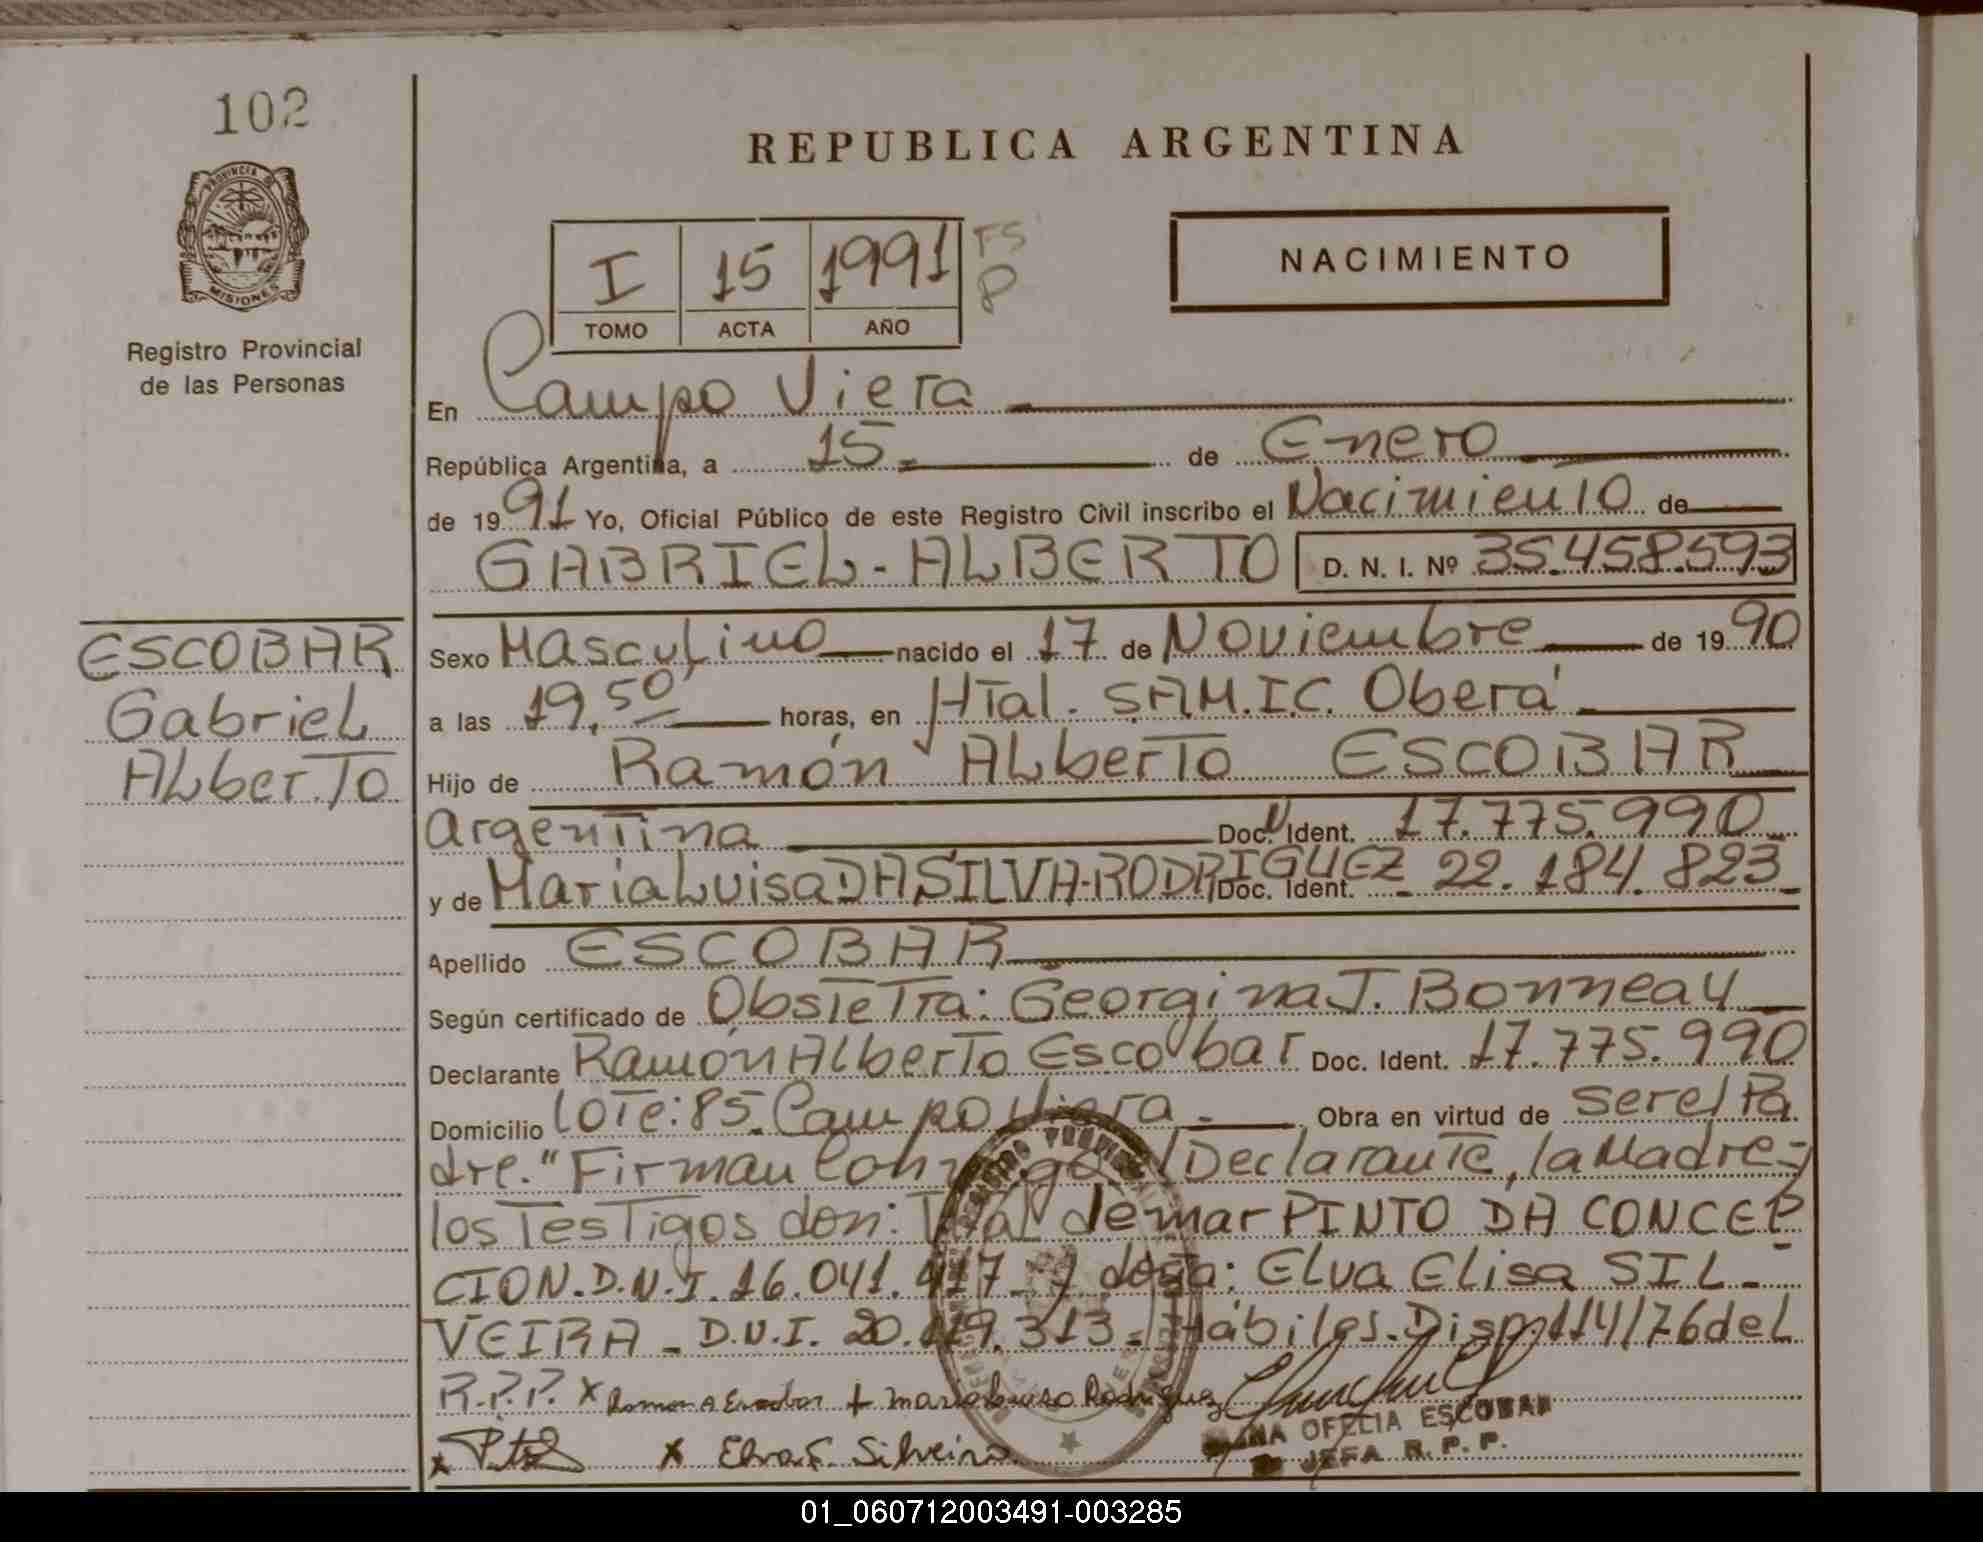 102
REPUBLICA ARGENTINA
PROVINCIA DE
MISIONES
Registro Provincial
de las Personas
I 15 1991 FS
TOMO ACTA AÑO 8
NACIMIENTO
En Campo Viera
República Argentina, a 15 de Enero
de 1991 Yo, Oficial Público de este Registro Civil inscribo el Nacimiento de
GABRIEL-ALBERTO D. N. I. Nº 35.458.593
ESCOBAR
Gabriel
Alberto
Sexo Masculino nacido el 17 de Noviembre de 1990
a las 19,50 horas, en Htal. S.A.M.I.C. Oberá
Hijo de Ramón Alberto ESCOBAR
Argentina Doc. N Ident. 17.775.990
y de María Luisa DA SILVA-RODRIGUEZ Doc. Ident. 22.184.823
Apellido ESCOBAR
Según certificado de Obstetra: Georgina J. Bonneau
Declarante Ramón Alberto Escobar Doc. Ident. 17.775.990
Domicilio lote: 85. Campo Viera Obra en virtud de ser el Pa
dre." Firman conmigo el Declarante, la Madre y
los Testigos don: Valdemar PINTO DA CONCEP
CION. D.N.I. 16.041.417 y doña: Elva Elisa SIL-
VEIRA - D.N.I. 20. 313. Hábiles. Disp. 114/76 del
R.P.P. x Ramon A Escobar + maria Luisa Rodriguez
x x Elva E. Silveira
OFELIA ESCOBAR
JEFA R. P. P.
01_060712003491-003285